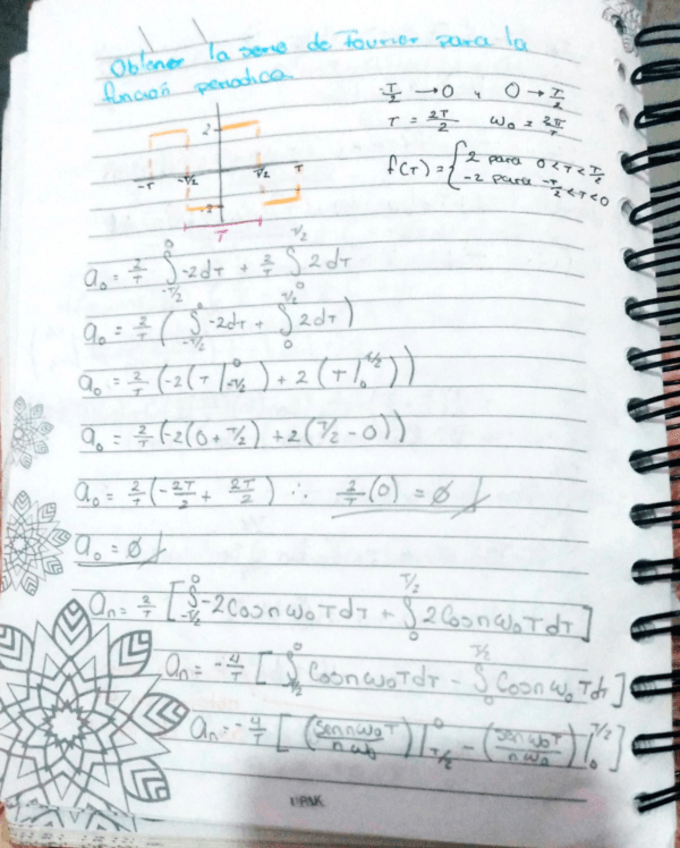 Obtener la serie de Fourier para la
función periodica
-T/2 → 0 y 0 → T/2
T = 2T/2 ω₀ = 2π/T
f(T) = { 2 para 0 < T < T/2
-2 para -T/2 < T < 0
2
-T -T/2 T/2 T
-2
T
a₀ = 2/T ∫_{-T/2}^{0} -2dT + 2/T ∫_{0}^{T/2} 2dT
a₀ = 2/T ( ∫_{-T/2}^{0} -2dT + ∫_{0}^{T/2} 2dT )
a₀ = 2/T (-2(T|_{-T/2}^{0}) + 2(T|_{0}^{T/2}))
a₀ = 2/T (-2(0+T/2) + 2(T/2 - 0))
a₀ = 2/T (-2T/2 + 2T/2) ∴ 2/T (0) = ∅
a₀ = ∅
aₙ = 2/T [ ∫_{-T/2}^{0} -2Cosnω₀TdT + ∫_{0}^{T/2} 2Cosnω₀TdT ]
aₙ = -4/T [ ∫_{T/2}^{0} Cosnω₀TdT - ∫_{0}^{T/2} Cosnω₀TdT ]
aₙ = -4/T [ (sennω₀T/nω₀)|_{T/2}^{0} - (senω₀T/nω₀)|_{0}^{T/2} ]